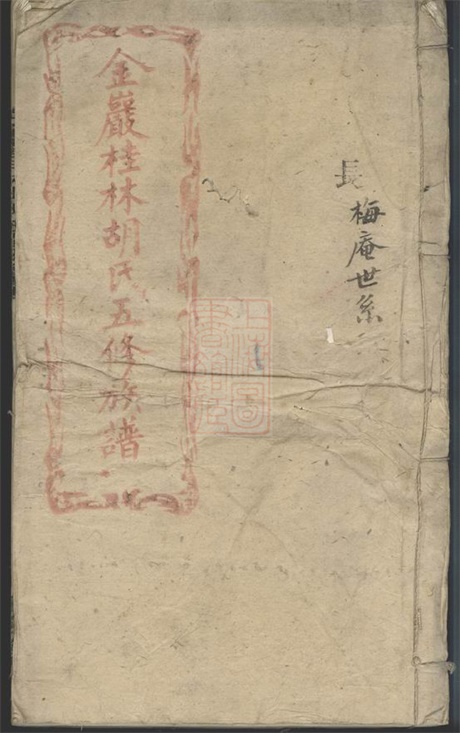 長
梅庵世系
金巖桂林胡氏五修族譜